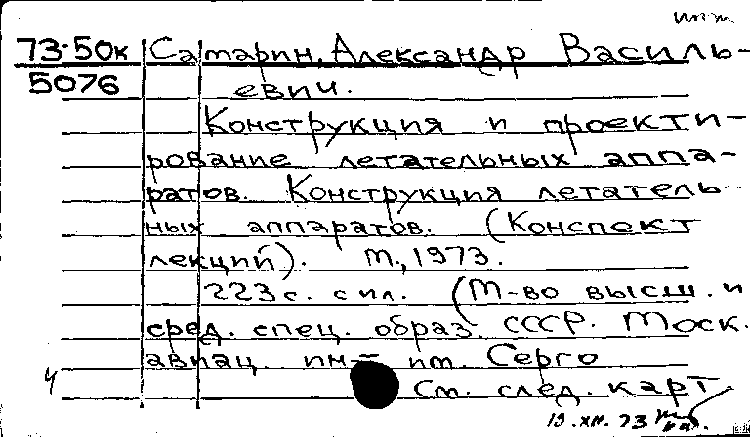 73-50к Самарин, Александр Василь-
5076 евич.
Конструкция и проекти-
рование летательных аппа-
ратов. Конструкция летатель
ных аппаратов. (Конспект
лекций). М., 1973.
223 с. с ил. (М-во высш. и
сред. спец. образ. СССР. Моск.
авиац. ин-т им. Серго
Ч См. след. карт
19.XII.73